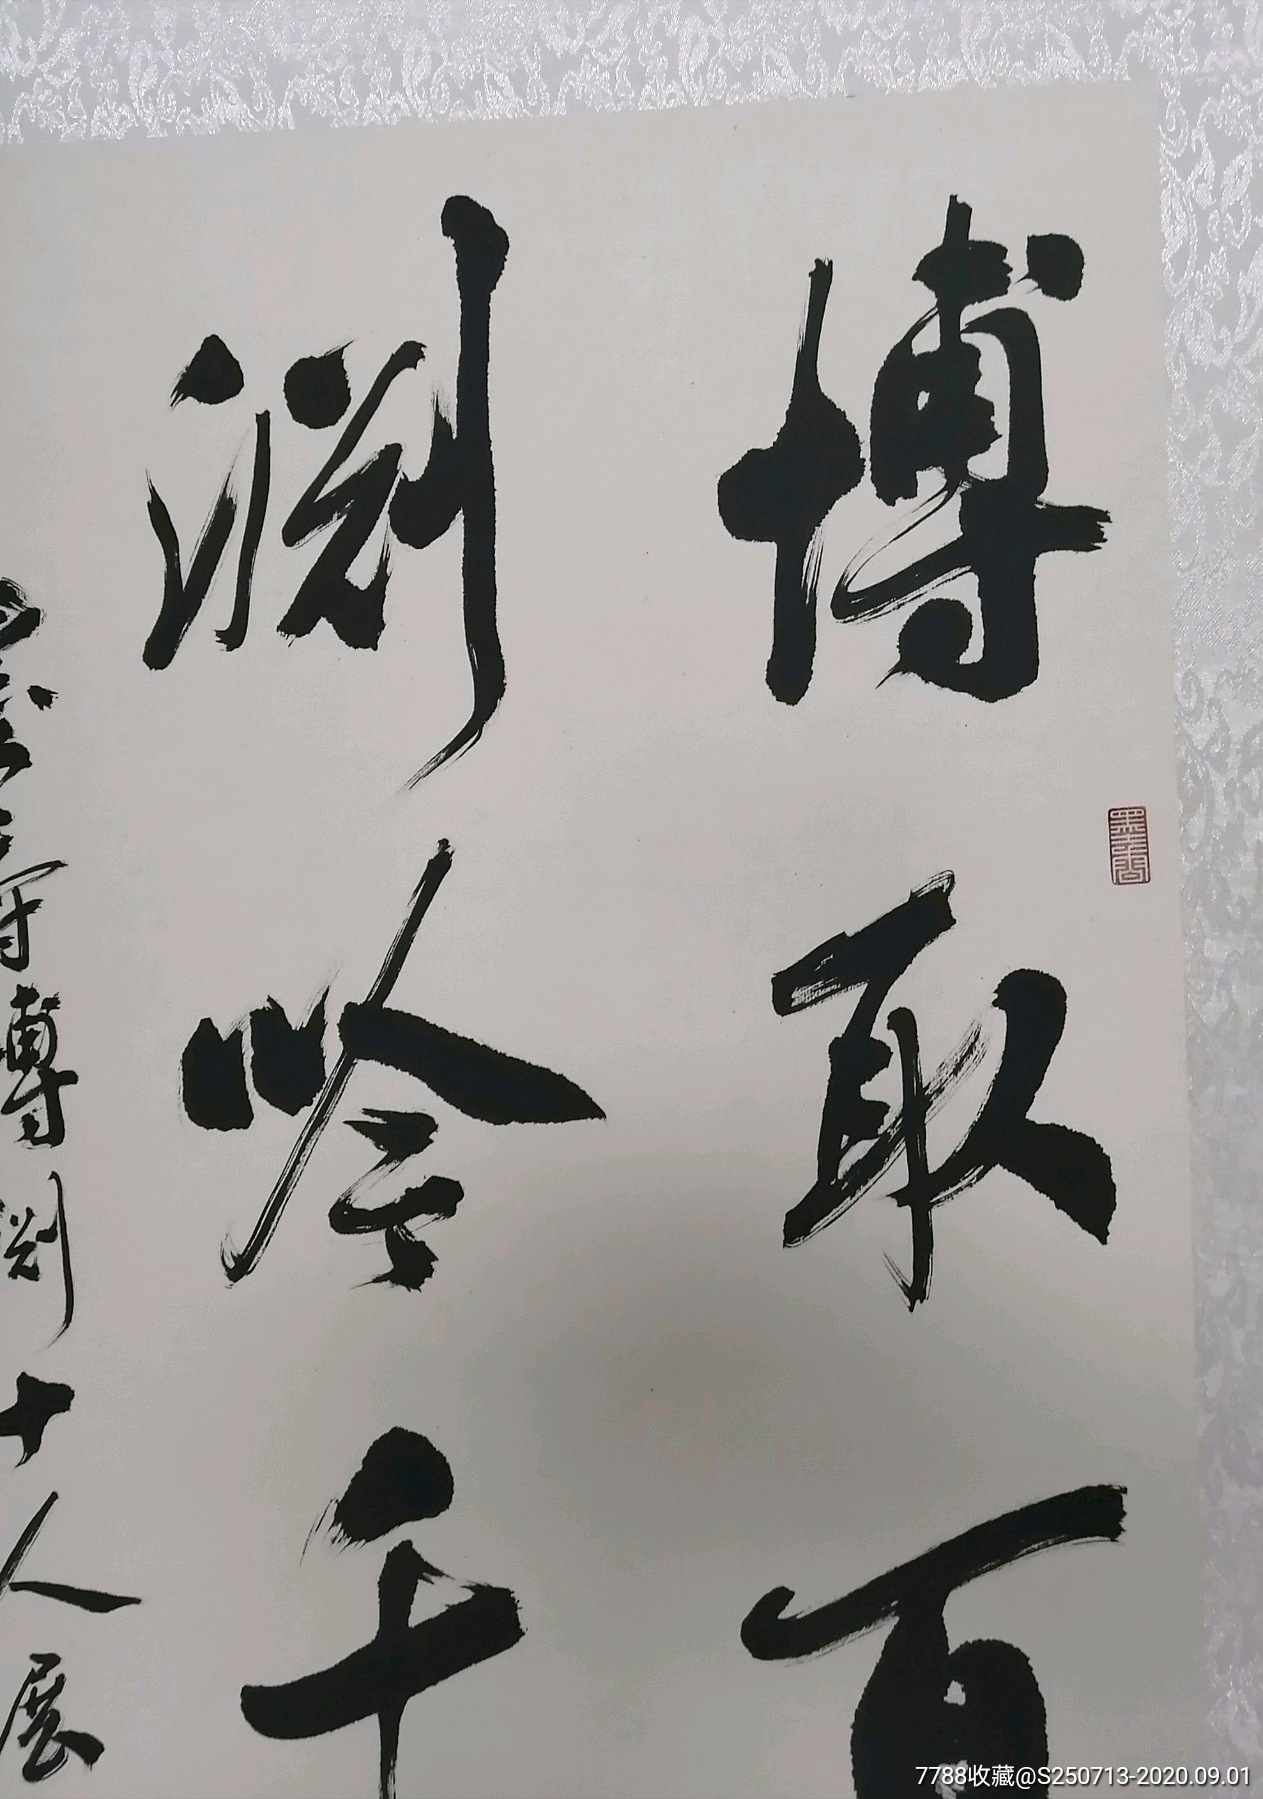 博取百
渊吟千
渊十人展
7788收藏@S250713-2020.09.01